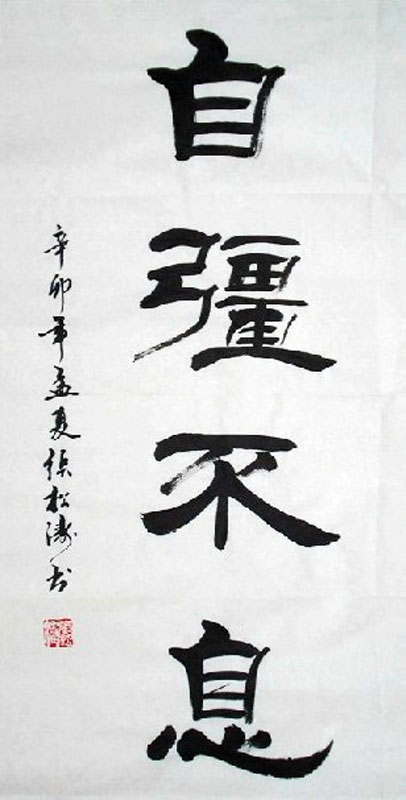 自彊不息
辛卯年孟夏松涛书